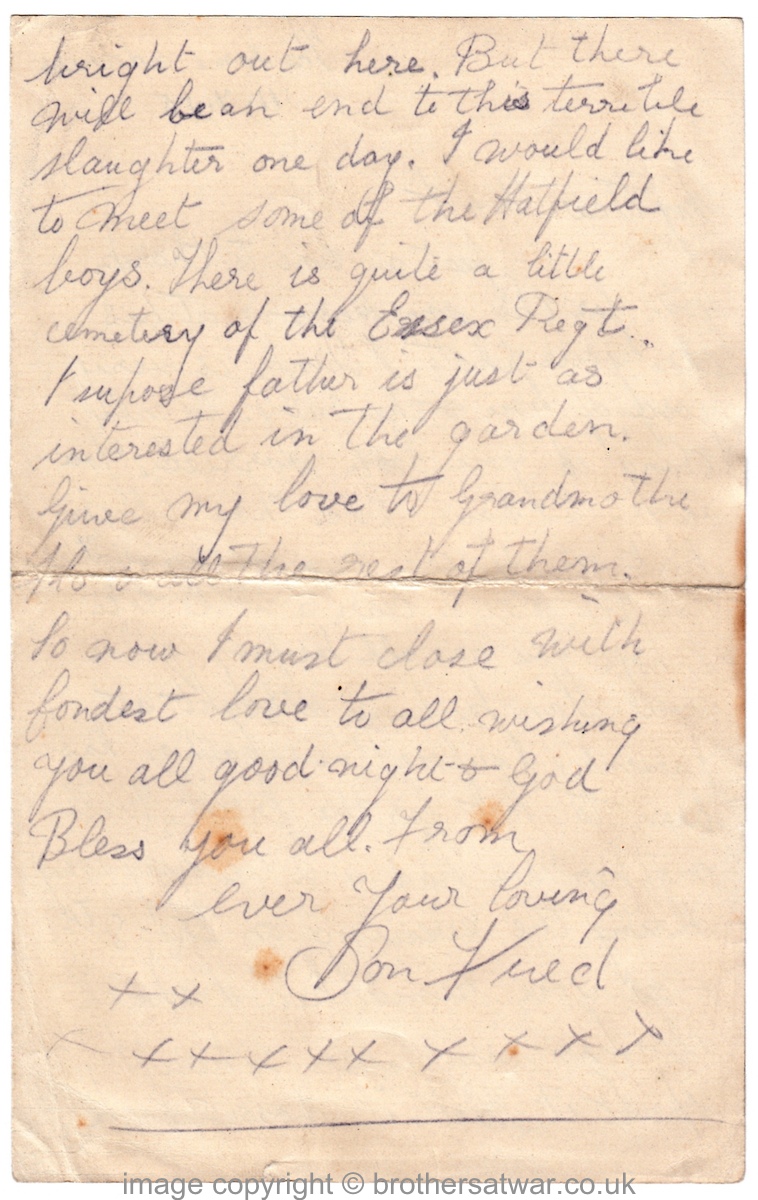 bright out here. But there
will be an end to this terrible
slaughter one day. I would like
to meet some of the Hatfield
boys. There is quite a little
cemetery of the Essex Regt.
I supose father is just as
interested in the garden.
Give my love to Grandmothe
the rest of them.
So now I must close with
fondest love to all wishing
you all good night & God
Bless you all. From
ever your loving
Son Fred
x x
x x x x x x x x x x
image copyright © brothersatwar.co.uk